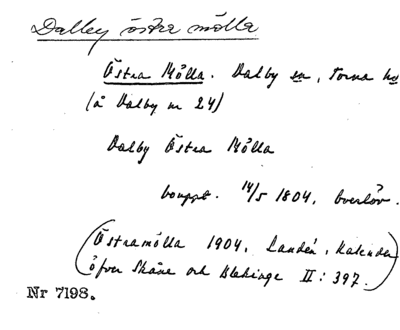 Dalby östra mölla
Östra Mölla. Dalby sn, Torna hd
(å Dalby nr 24)
Dalby Östra Mölla
bouppt. 14/5 1804, Överlöv.
(Östramölla 1904, Landén, Kalender
öfver Skåne och Blekinge II: 397.)
Nr 7198.